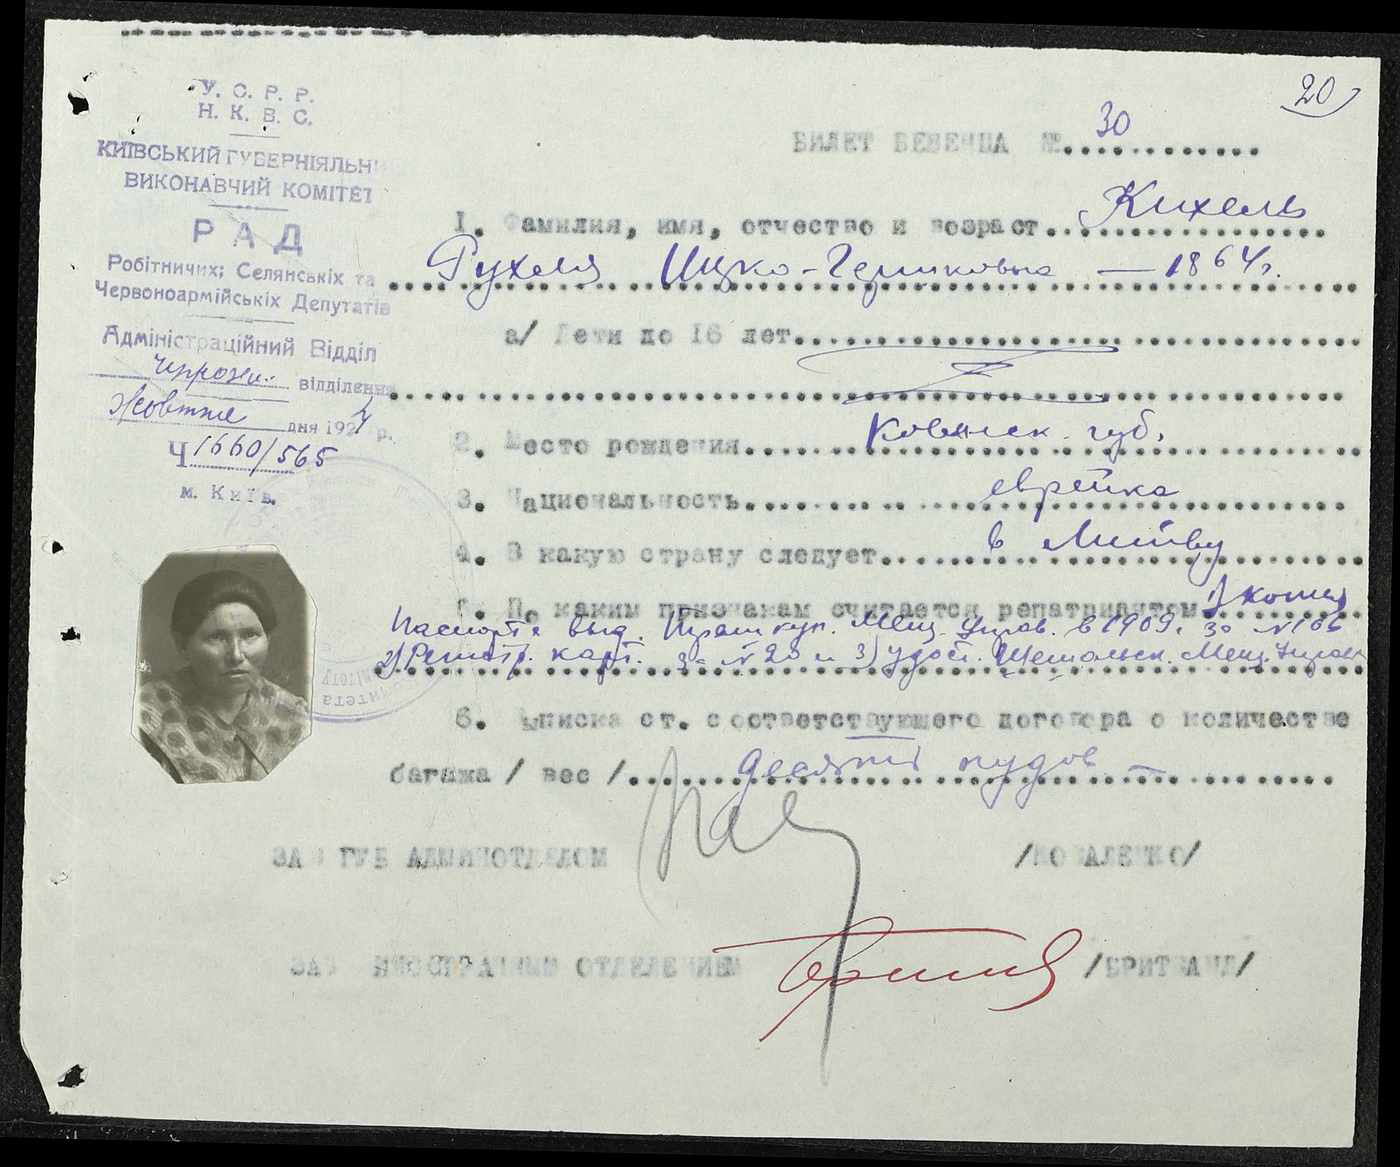 20
У. С. Р. Р.
Н. К. В. С.
КИЇВСЬКИЙ ГУБЕРНІЯЛЬН
ВИКОНАВЧИЙ КОМІТЕТ
РАД
Робітничих; Селянських та
Червоноармійських Депутатів
Адміністраційний Відділ
відділення
Жовтня дня 1924 р.
Ч 1660/565
м. Київ.
БИЛЕТ БЕЖЕНЦА № 30
1. Фамилия, имя, отчество и возраст Кихель
Рухеля Ицко-Гершковна — 1864 г.
а/ Дети до 16 лет
2. Место рождения Ковенск. губ.
3. Национальность еврейка
4. В какую страну следует в Литву
5. По каким признакам считается репатриантом 1) копия
Паспорта выд. Мещ. Управ. в 1909 г. за № 106
2) Регистр. карт. за № 20 и 3) удост. Мещ. Управ
6. Выписка ст. соответствующего договора о количестве
багажа / вес / десять пудов —
ЗАВ ГУБ АДМИНОТДЕЛОМ /КОВАЛЕНКО/
ЗАВ ИНОСТРАННЫМ ОТДЕЛЕНИЕМ /БРИТВАНД/